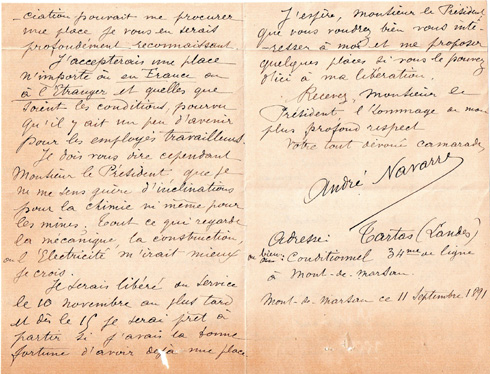 ciation pouvait me procurer
une place, je vous en serais
profondément reconnaissant.
J'accepterais une place
n'importe où en France ou
à l'Etranger et quelles que
soient les conditions, pourvu
qu'il y ait un peu d'avenir
pour les employés travailleurs.
Je dois vous dire cependant
Monsieur le Président, que je
ne me sens guère d'inclinations
pour la chimie ni même pour
les mines; Tout ce qui regarde
la mécanique, la construction,
ou l'Electricité m'irait mieux
je crois.
Je serais libéré du Service
le 10 novembre au plus tard
et dès le 15 je serai prêt à
partir si j'avais la bonne
fortune d'avoir déjà une place.
J'espère, Monsieur le Président
que vous voudrez bien vous inté-
resser à moi et me proposer
quelques places si vous le pouvez
d'ici à ma libération.
Recevez, Monsieur le
Président, l'hommage de mon
plus profond respect
Votre tout dévoué camarade,
André Navarre
Adresse: Tartas (Landes)
ou bien Conditionnel 34me de ligne
à Mont-de-marsan.
Mont-de-Marsan ce 11 Septembre 1891